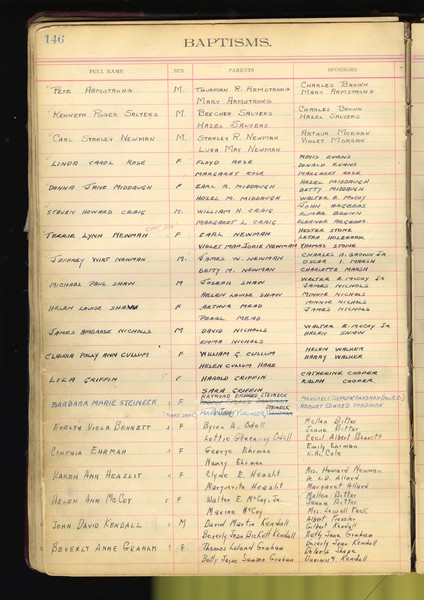 146
BAPTISMS.
FULL NAME SEX PARENTS SPONSORS
Pete Armstrong M. Thurman R. Armstrong Charles Brown
Mary Armstrong Mary Armstrong
Kenneth Roger Salyers M. Beecher Salyers Charles Brown
Hazel Salyers Hazel Salyers
Carl Stanley Newman M. Stanley R. Newman Arthur Morgan
Lura May Newman Violet Morgan
Linda Carol Rose F Floyd Rose Mavis Evans
Donald Evans
Margaret Rose Margaret Rose
Donna Jane Middaugh F Earl R. Middaugh Hazel Middaugh
Betty Middaugh
Hazel M. Middaugh Walter E. McCoy
Steven Howard Craig M. William H. Craig John
Elmer Brown
Margaret L. Craig Eleanor
Terrie Lynn Newman F Earl Newman Hester Stone
Letha Holbrook
Violet Marjorie Newman Thomas Stone
Jeffrey Wirt Newman M. James W. Newman Charles H. Brown Jr
Oscar I. Marsh
Betty M. Newman Charlotte Marsh
Michael Paul Shaw M Joseph Shaw Walter E. McCoy Jr
James Nichols
Helen Louise Shaw Minnie Nichols
Helen Louise Shaw F Arthur Mead Minnie Nichols
James Nichols
Pearl Mead
James Ambrose Nicholls M David Nicholls Walter E. McCoy Jr
Helen Shaw
Emma Nicholls
Claudia Polly Ann Cullum F William G. Cullum Helen Walker
Harry Walker
Helen Cullum Hare
Liza Griffin F Harold Griffin Catherine Cooper
Ralph Cooper
Sara Griffin
Barbara Marie Steineck F Raymond Richard Steineck
Steineck Robert Edward Sandman
Evelyn Viola Bennett F Byron A. Odell Mellen Bitter
Jeane Bitter
Lottie Odell Cecil Albert Bennett
Cynthia Ehrman F George Ehrman Emily Ehrman
L.H. Cole
Nancy Ehrman
Karen Ann Heazlit F Clyde E. Heazlit Mrs. Howard Newman
Dr. L.D. Allard
Marguerite Heazlit Margaret Allard
Helen Ann McCoy F Walter E. McCoy, Jr. Mellen Bitter
Jeane Bitter
Maxine McCoy Mrs. Lowell
John David Kendall M David Martin Kendall Albert Pressler
Gilbert Kendall
Beverly Jean Hickett Kendall Betty Jane Graham
Beverly Anne Graham F Thomas Leland Graham Beverly Jean Kendall
Delores Shope
Betty Jayne Graham Kendall